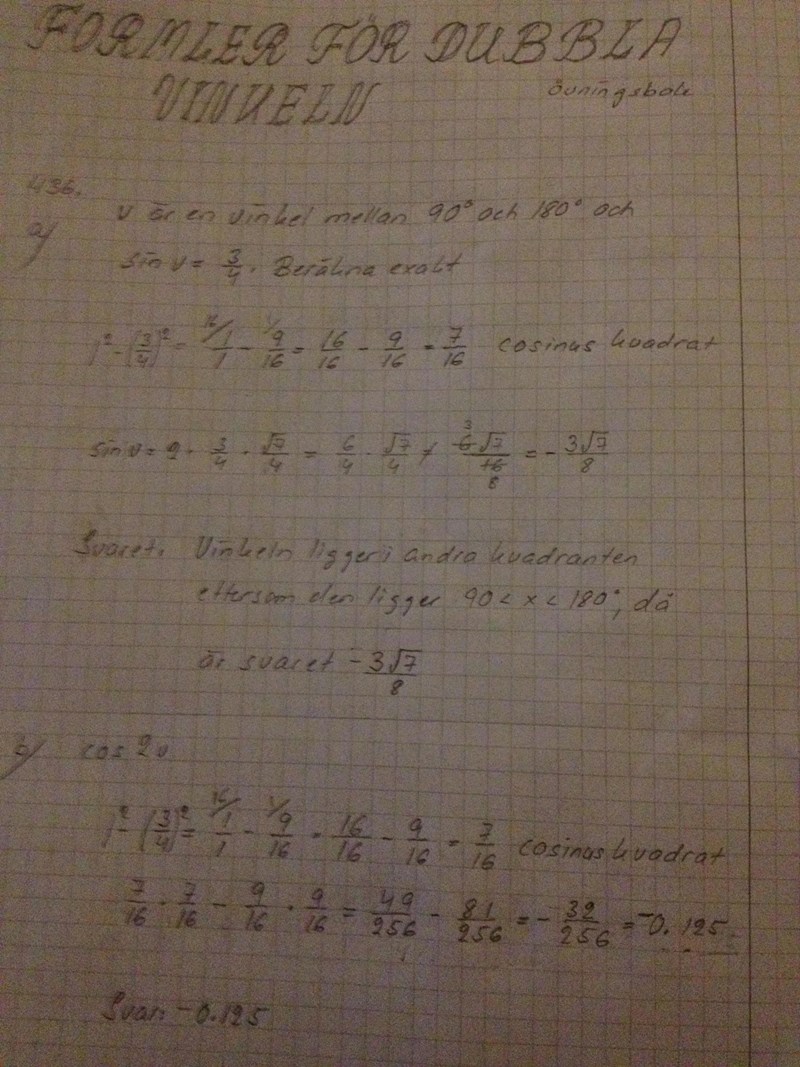 FORMLER FÖR DUBBLA
VINKELN
övningsbok
436.
a) v är en vinkel mellan 90° och 180° och
sin v = 3/4. Beräkna exakt
1² - (3/4)² = 16/ 1/1 - 1/ 9/16 = 16/16 - 9/16 = 7/16 cosinus kvadrat
sin v = 2 · 3/4 · √7/4 = 6/4 · √7/4 ≠ 3 6√7/16 8 = - 3√7/8
Svaret. Vinkeln ligger i andra kvadranten
eftersom den ligger 90 < x < 180°, då
är svaret - 3√7/8
b) cos 2v
1² - (3/4)² = 16/ 1/1 - 1/ 9/16 = 16/16 - 9/16 = 7/16 cosinus kvadrat
7/16 · 7/16 - 9/16 · 9/16 = 49/256 - 81/256 = - 32/256 = -0.125
Svar: -0.125